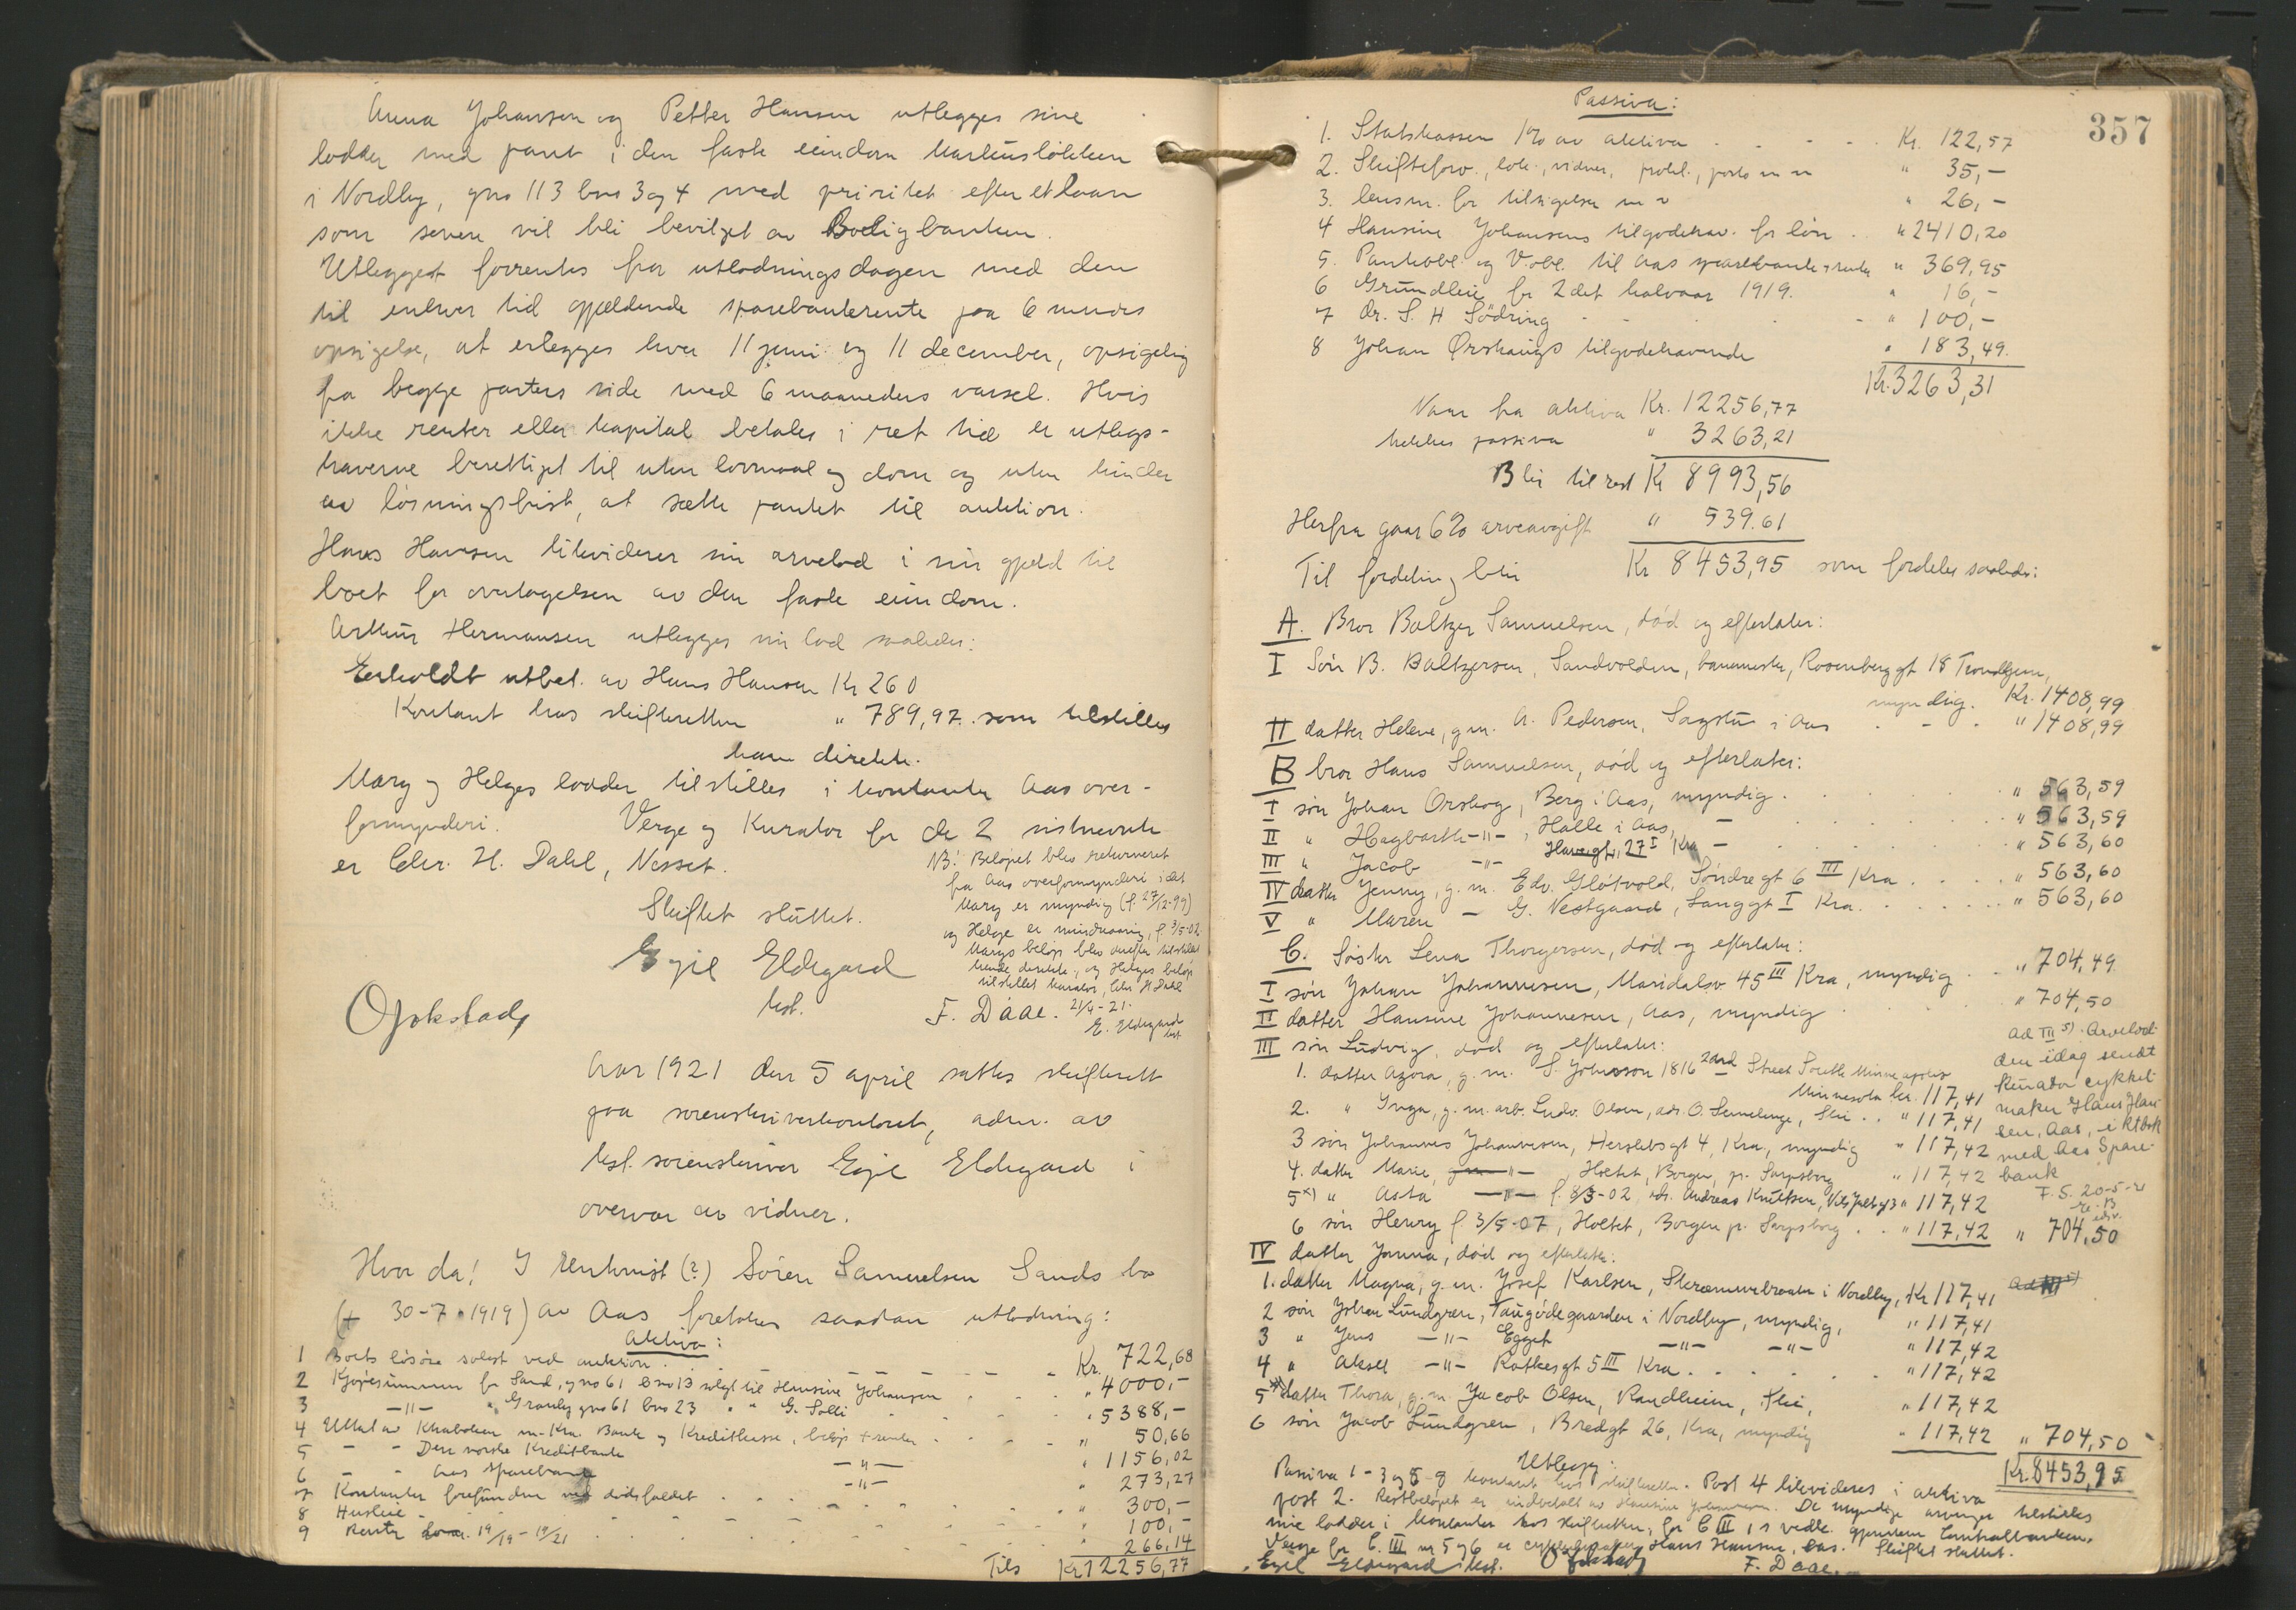 Anna Johansen og Petter Hansen utlegges sine
lodder med pant i den faste eiendom Markusløkken
i Nordby, gno 113 bno 3 og 4 med prioritet efter et laan
som senere vil bli bevilget av Boligbanken.
Utlegget forrentes fra utlodningsdagen med den
til enhver tid gjældende sparebankrente paa 6 mndrs
opsigelse, at erlegges hver 11 juni og 11 december, opsigelig
fra begge parters side med 6 maaneders varsel. Hvis
ikke renter eller kapital betales i ret tid er utlegs-
haverne berettiget til uten lovmaal og dom og uten hinder
av løsningsfrist, at sætte pantet til auktion.
Hans Hansen likviderer sin arvelod i sin gjæld til
boet for overtagelsen av den faste eiendom.
Arthur Hermansen utlegges sin lod saaledes:
Erholdt utbet. av Hans Hansen Kr 260
Kontant hos skifteretten " 789,97 som tilstilles
ham direkte.
Mary og Helges lodder tilstilles i kontanter Aas over-
formynderi. Verge og Kurator for de 2 sistnevnte
er H. Dahl, Nesset.
NB! Beløpet blev returneret
fra Aas overformynderi idet
Mary er myndig (f. 27/12-99)
og Helge er mindreaarig, f 3/5-02.
Marys beløp blev derefter tilstillet
hende direkte, og Helges beløp
tilstillet kurator, H Dahl
21/4-21.
E. Eldegard
kst
Skiftet sluttet.
Egil Eldegard
kst.
F. Daae.
Opkstad
Aar 1921 den 5 april sattes skifterett
paa sorenskriverkontoret, adm. av
kst. sorenskriver Egil Eldegard i
overvær av vidner.
Hvor da! I (?) Søren Samuelsen Sands bo
(+ 30-7-1919) av Aas foretokes saadan utlodning:
Aktiva:
1 Boets løsøre solgt ved auktion . . . Kr. 722,68
2 Kjøpesummen for Sand, gno 61 bno 13 solgt til Hansine Johansen " 4000,-
3 -"- " Granly gno 61 bno 23 " " G. Solli " 5388,-
4 Uttat av Kra. Bank og Kreditkasse, beløp + renter " 50,66
5 - - Den norske Kreditbank -"- " 1156,02
6 - - Aas Sparebank -"- " 273,27
7 Kontanter forefunden ved dødsfaldet " 300,-
8 Husleie " 100,-
9 Renter 19/19 - 19/21 " 266,14
Tils Kr 12256,77
357
Passiva:
1. Statskassen 1% av aktiva . . . Kr. 122,57
2. Skifteforv., lok., vidner, protok., porto m m " 35,-
3. lensm. for tilsigelser m v " 26,-
4 Hansine Johansens tilgodehav. for løn . " 2410,20
5. Pantobl. og V.obl. til Aas sparebank + renter " 369,95
6 Grundleie for 2det halvaar 1919. " 16,-
7 dr. S. H Södring " 100,-
8 Johan Ørshaugs tilgodehavende " 183,49.
Kr. 3263,31
Naar fra aktiva Kr. 12256,77
trekkes passiva " 3263,21
Blir til rest Kr 8993,56
Herfra gaar 6% arveavgift " 539.61
Til fordeling blir Kr 8453,95 som fordeles saaledes:
A. Bror Baltzer Samuelsen, død og efterlater:
I Søn B. Baltzersen, Sandvolden, banemester, Rosenborggt 18 Trondhjem,
myndig. Kr. 1408,99
II datter Helene, g.m. A. Pedersen, Sagstu i Aas . - . " 1408,99
B bror Hans Samuelsen, død og efterlater:
I søn Johan Orshog, Berg i Aas, myndig . . . " 563,59
II " Hagbarth -"- , Halle i Aas, - . . . " 563,59
III " Jacob -"- 27 I Kra - . . . " 563,60
IV datter Jenny, g.m. Edv. Gløtvold, Søndregt 6 III Kra . . . " 563,60
V " Maren - G. Vestgaard, Langgt I Kra. . . . " 563,60
C. Søster Lena Thorgersen, død og efterlater:
I søn Johan Johannesen, Maridalsv 45 III Kra, myndig . . " 704,49
II datter Hansine Johannesen, Aas, myndig . . . " 704,50
III søn Ludvig, død og efterlater:
1. datter Agora, g.m. S. Johnson 1816 2and Street South Minneapolis
Minnesota kr. 117,41
2. " Inga, g.m. arb. Ludv. Olsen, adr. O. Semelenge, Ski . . " 117,41
3 søn Johannes Johannesen, Herslebsgt 4, Kra, myndig " 117,42
4. datter Marie, -"- , Holtet, Borgen, pr. Sarpsborg " 117,42
5 x) " Asta -"- f. 8/3-02, adr. Andreas Knutsen, " 117,42
6 søn Henry f 3/5-07, Holtet, Borgen pr. Sarpsborg . . " 117,42 " 704,50
ad III 5). Arvelod-
den idag sendt
kurator cykkel-
maker Hans Han-
sen, Aas, i ktbok
med Aas Spare-
bank
F.S. 20-5-21
IV datter Janna, død og efterlater:
1. datter Magna, g.m. Josef Karlsen, Skrammerbraaten i Nordby, Kr 117,41
2 søn Johan Lundgren, Taugbødegaarden i Nordby, myndig, " 117,41
3 " Jens -"- Egget -"- -"- " 117,42
4 " Aksel -"- Ratkesgt 5 III Kra . . . " 117,42
5 datter Thora, g.m. Jacob Olsen, Randheim, Ski, " 117,42
6 søn Jacob Lundgren, Bredgt 26, Kra, myndig " 117,42 " 704,50
Kr. 8453,95
Utlegg:
Passiva 1-3 og 5-8 kontant hos skifteretten. Post 4 likvideres i aktiva
post 2. Restbeløpet er indbetalt av Hansine Johannesen. De myndige arvinger tilstilles
sine lodder i kontanter hos skifteretten, for C III 1 s vedk. gjennem Centralbanken.
Verge for C. III nr 5 og 6 er cykkelmaker Hans Hansen, Aas. Skiftet sluttet.
Egil Eldegard kst. Opkstad F. Daae.